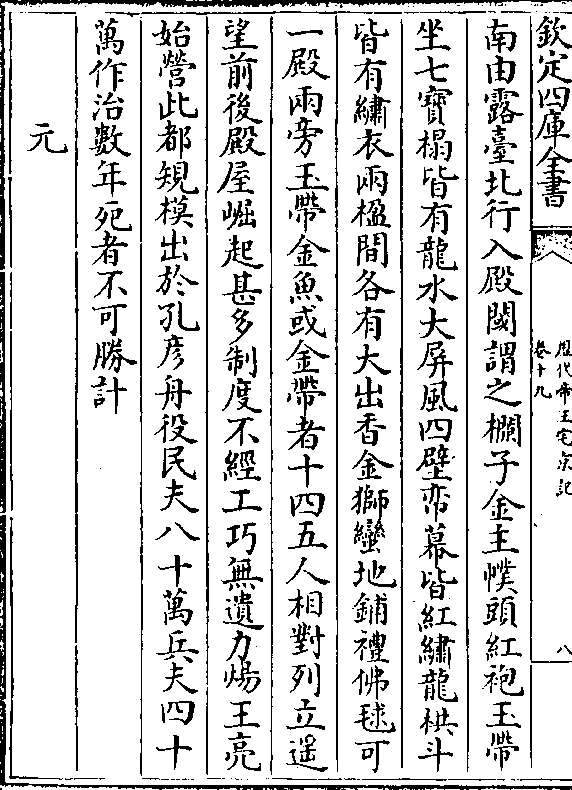 欽定四庫全書
歷代帝王宅京記
卷十九
八
南由露臺北行入殿閾謂之欄子金主幞頭紅袍玉帶
坐七寶榻皆有龍水大屏風四壁帟幕皆紅繡龍栱斗
皆有繡衣兩楹間各有大出香金獅蠻地鋪禮佛毯可
一殿兩旁玉帶金魚或金帶者十四五人相對列立遥
望前後殿屋崛起甚多制度不經工巧無遺力煬王亮
始營此都規模出於孔彦舟役民夫八十萬兵夫四十
萬作治數年死者不可勝計
元